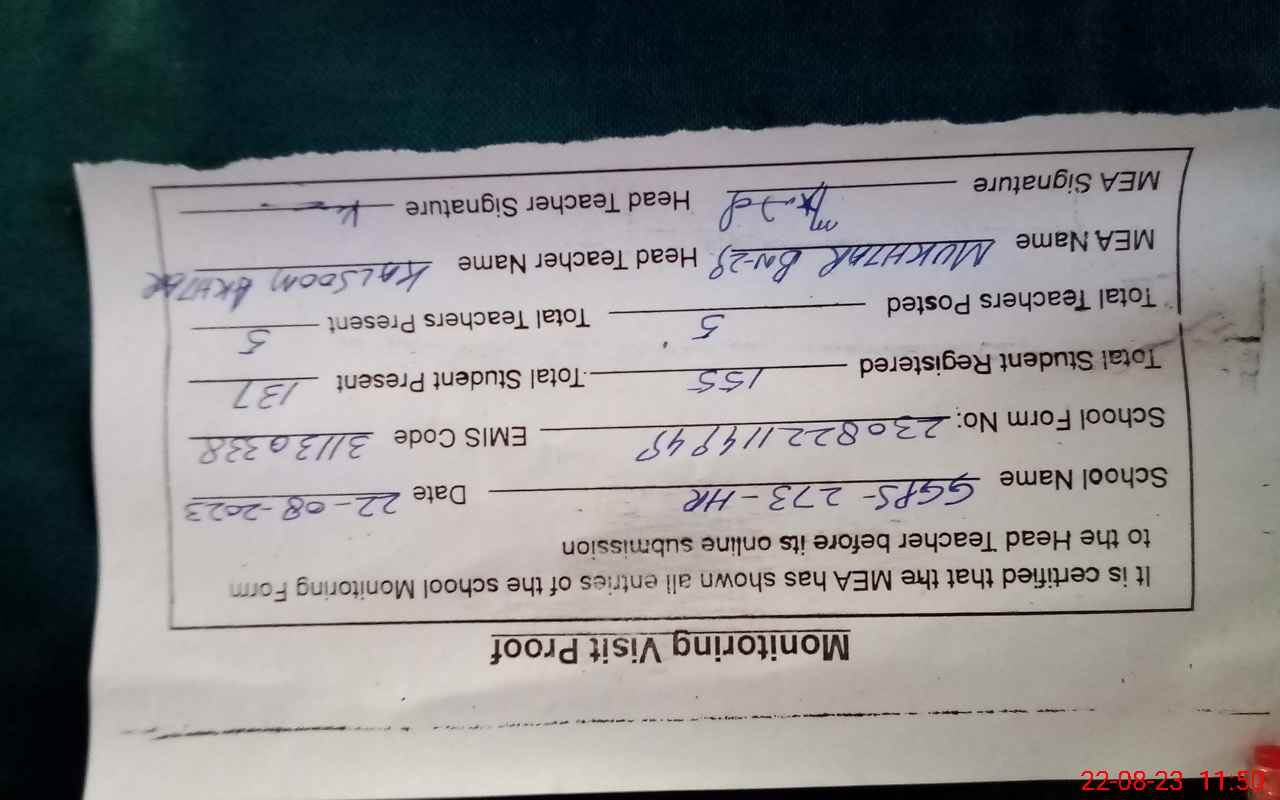 Monitoring Visit Proof
It is certified that the MEA has shown all entries of the school Monitoring Form
to the Head Teacher before its online submission
School Name GGPS-273-HR Date 22-08-2023
School Form No: EMIS Code 31130338
Total Student Registered 155 Total Student Present 137
Total Teachers Posted 5 Total Teachers Present 5
MEA Name MUKHTAR BN-29 Head Teacher Name KALSOOM AKHTAR
MEA Signature Head Teacher Signature
22-08-23 11:50